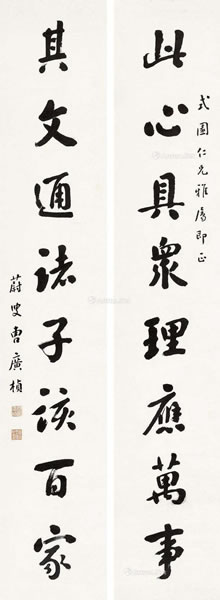 式園仁兄雅屬即正
此心具衆理應萬事
其文通諸子該百家
蔚叟曹廣楨